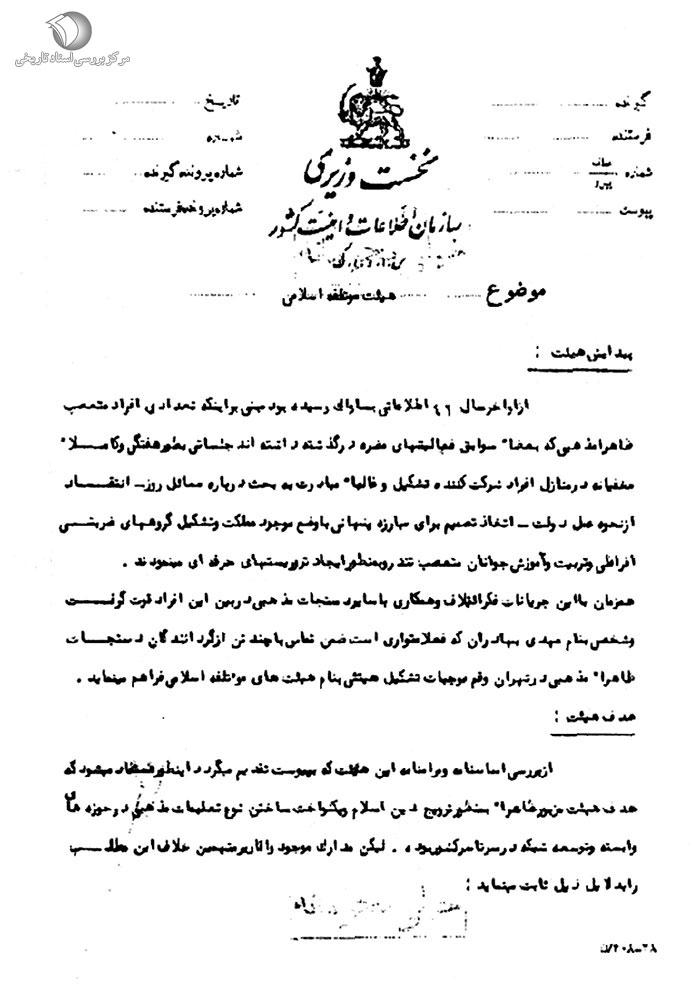 مرکز بررسی اسناد تاریخی
گیرنده
فرستنده
شماره
پیوست
تاریخ
شماره
شماره پرونده گیرنده
شماره پرونده فرستنده
نخست وزیری
سازمان اطلاعات و امنیت کشور
موضوع هیئت موتلفه اسلامی
پیدایش هیئت :
از اواخر سال ۴۲ اطلاعاتی بساواک رسیده بود مبنی بر اینکه تعدادی افراد متعصب
ظاهرا مذهبی که بعضا" سوابق فعالیتهای مضره در گذشته داشته اند جلساتی بطور هفتگی و کاملا"
مخفیانه در منازل افراد شرکت کننده تشکیل و غالبا" مبادرت به بحث درباره مسائل روز - انتقاد
از نحوه عمل دولت - اتخاذ تصمیم برای مبارزه پنهانی با وضع موجود مملکت و تشکیل گروههای ضربتی
افراطی و تربیت و آموزش جوانان متعصب تند رو بمنظور ایجاد تروریستهای حرفه ای مینمودند .
همزمان با این جریانات فکر ائتلاف و همکاری با سایر دستجات مذهبی در بین این افراد قوت گرفت
و شخصی بنام مهدی بهادران که فعلا متواری است ضمن تماس با چند تن از گردانندگان دستجات
ظاهرا" مذهبی در تهران و قم موجبات تشکیل هیئتی بنام هیئت های موتلفه اسلامی فراهم مینماید .
هدف هیئت :
از بررسی اساسنامه و مرامنامه این هیئت که بپیوست تقدیم میگردد اینطور استفاد میشود که
هدف هیئت مزبور ظاهرا" بمنظور ترویج دین اسلام و یکنواخت ساختن نوع تعلیمات مذهبی در حوزه های
وابسته و توسعه شبکه در سرتاسر کشور بوده . لیکن مدارک موجود و اقاریر متهمین خلاف این مطلب
را بدلایل ذیل ثابت مینماید :